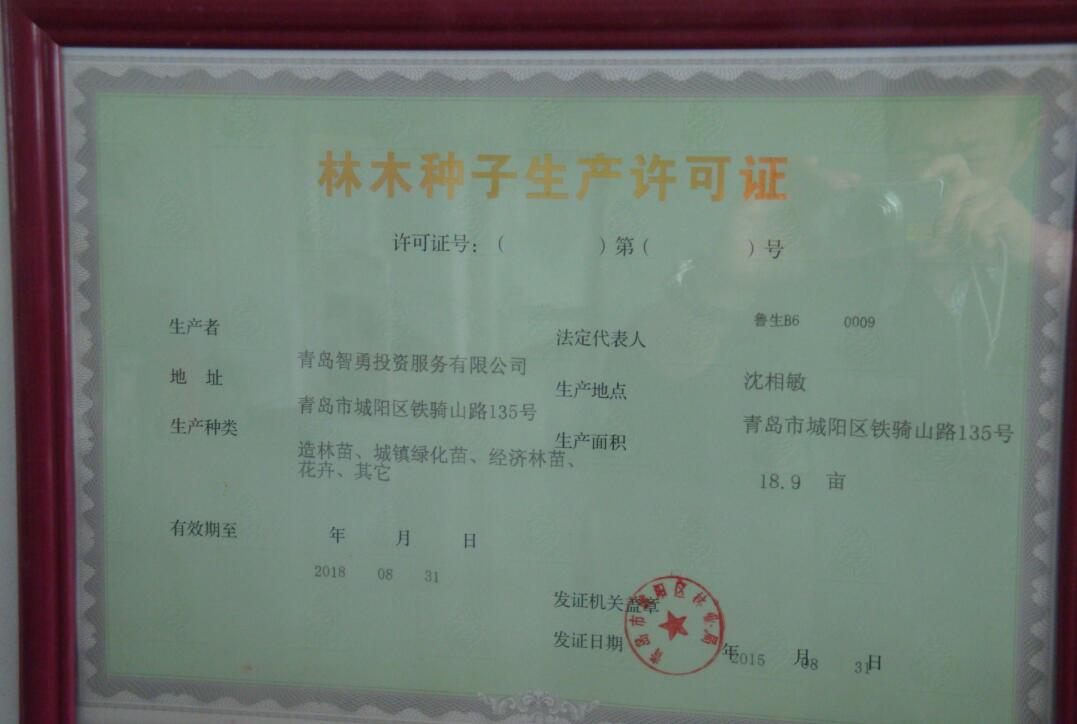 林木种子生产许可证
许可证号：（ ）第（ ）号
鲁生B6 0009
生产者
青岛智勇投资服务有限公司
法定代表人
沈相敏
地 址
青岛市城阳区铁骑山路135号
生产地点
青岛市城阳区铁骑山路135号
生产种类
造林苗、城镇绿化苗、经济林苗、
花卉、其它
生产面积
18.9 亩
有效期至 年 月 日
2018 08 31
发证机关盖章
青岛市城阳区林业局
发证日期 年 月 日
2015 08 31